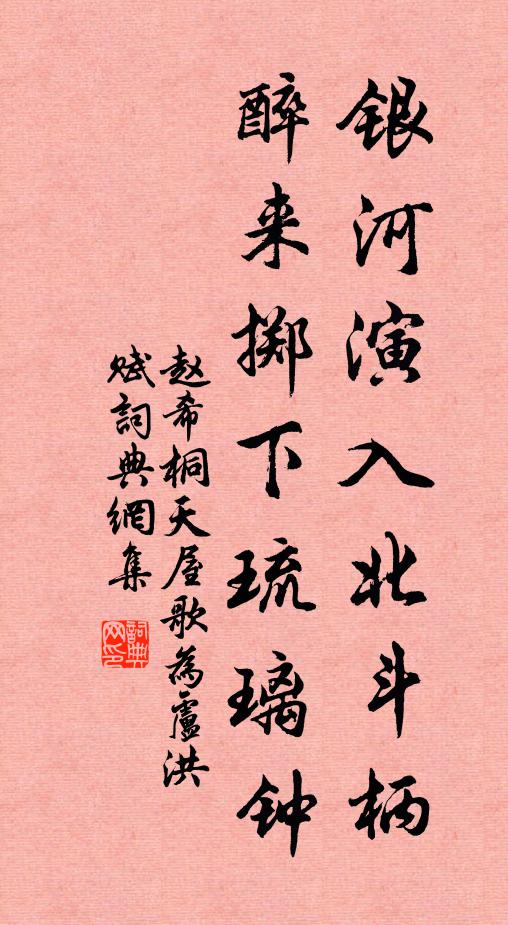 银河演入北斗柄
醉来掷下琉璃钟
赵希桐天屋歌為盧洪
赋詞典網集
詞典网印